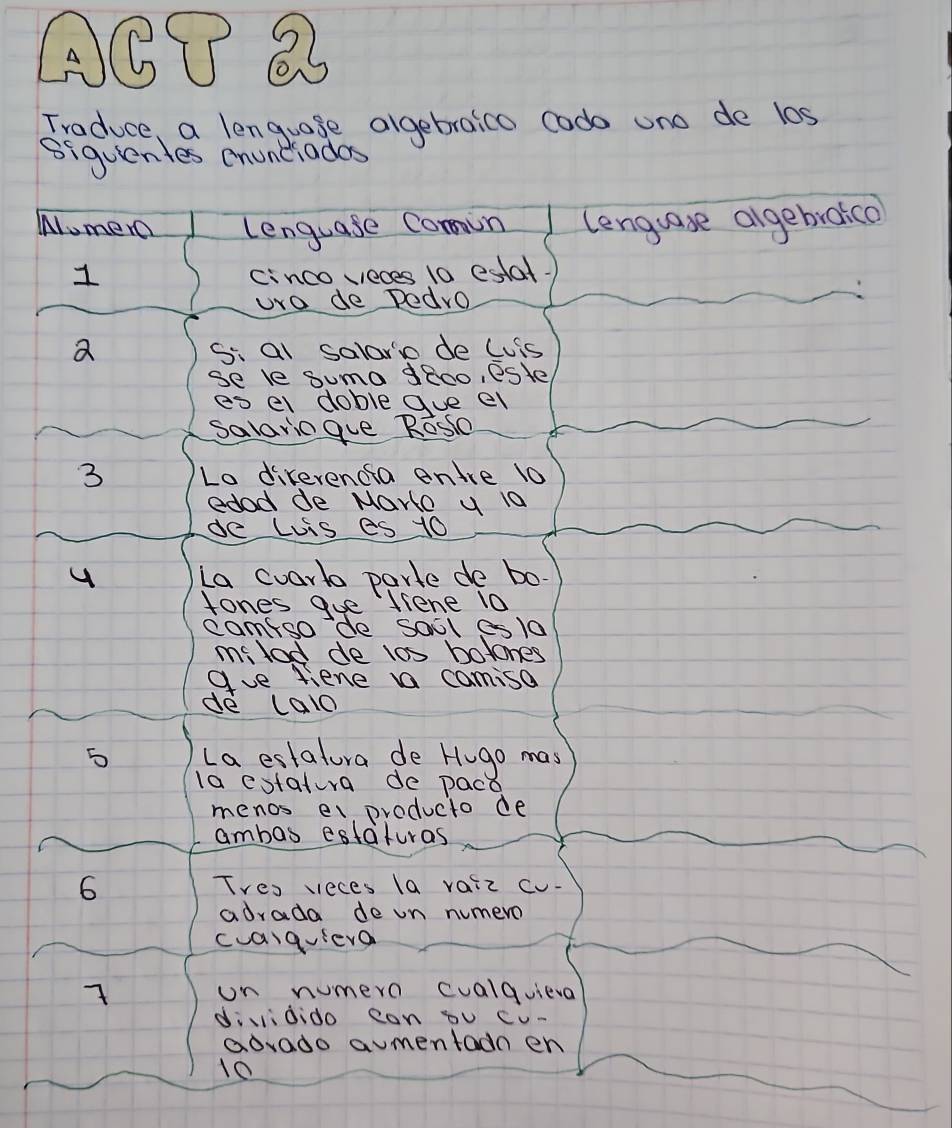 ACT 2
Traduce a lenguaje algebraico cada uno de los
siguientes enunciados
Numero Lenguaje Común Lenguaje algebraico
1 cinco veces la estat-
ura de Pedro
2 Si al salario de Luis
se le suma $800, este
es el doble que el
salario que Rosio
3 La diferencia entre la
edad de Mario y la
de Luis es 10
4 La cuarta parte de bo-
tones que tiene la
camisa de saúl es la
mitad de los botones
que tiene la camisa
de Lalo
5 La estatura de Hugo mas
la estatura de paco
menos el producto de
ambas estaturas
6 Tres veces la raiz cu-
adrada de un numero
cualquiera
7 un numero cualquiera
dividido con su cu-
adrado aumentado en
10